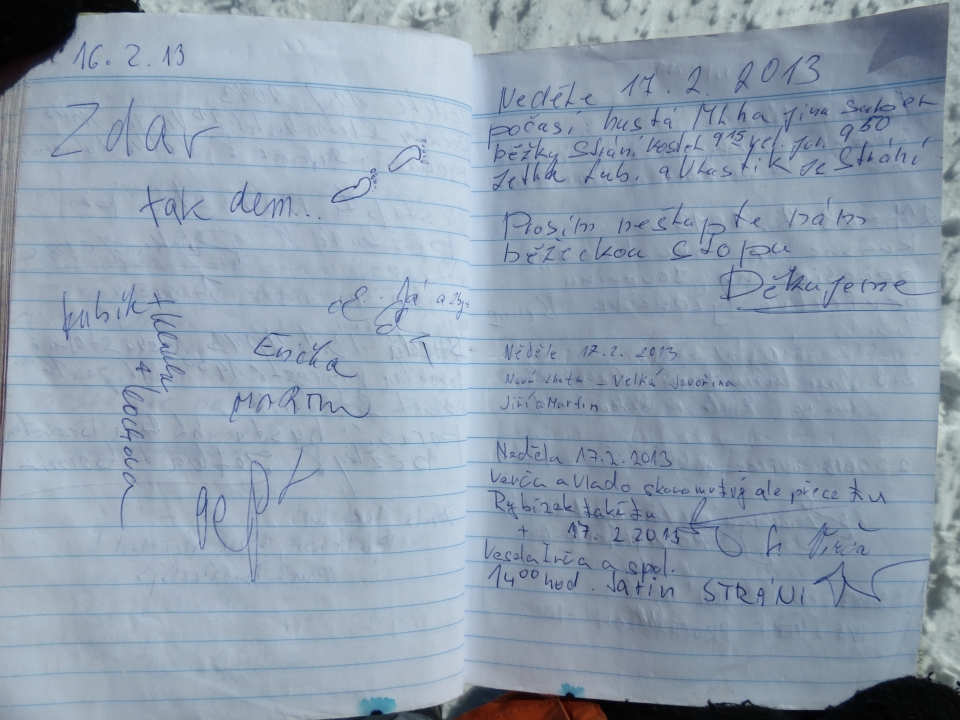 16.2.13
Zdar
tak dem...
kubík +
Já a Zby
Erička
MARTIN
Neděle 17.2. 2013
počasí: hustá Mlha jina
běžky Strán. kostel 9¹⁵ vel. jav. 9⁵⁰
Jetka Lub. a Vlastik ze Strání
Prosím nešlapte nám
běžeckou stopu
Děkujeme
Neděle 17.2. 2013
Nová - Velká Javořina
Jiří a Martin
Neděla 17.2.2013
Verča a Vlado skoromrtvý ale přece tu
Rybízek také tu
+ 17.2.2013
Vesela a spol.
14⁰⁰ hod. STRÁNI